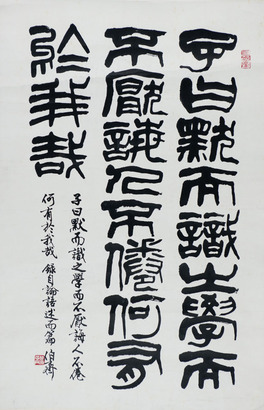 子曰默而識之學而
不厭誨人不倦何有
於我哉
子曰默而識之學而不厭誨人不倦
何有於我哉 錄自論語述而篇 伯齊